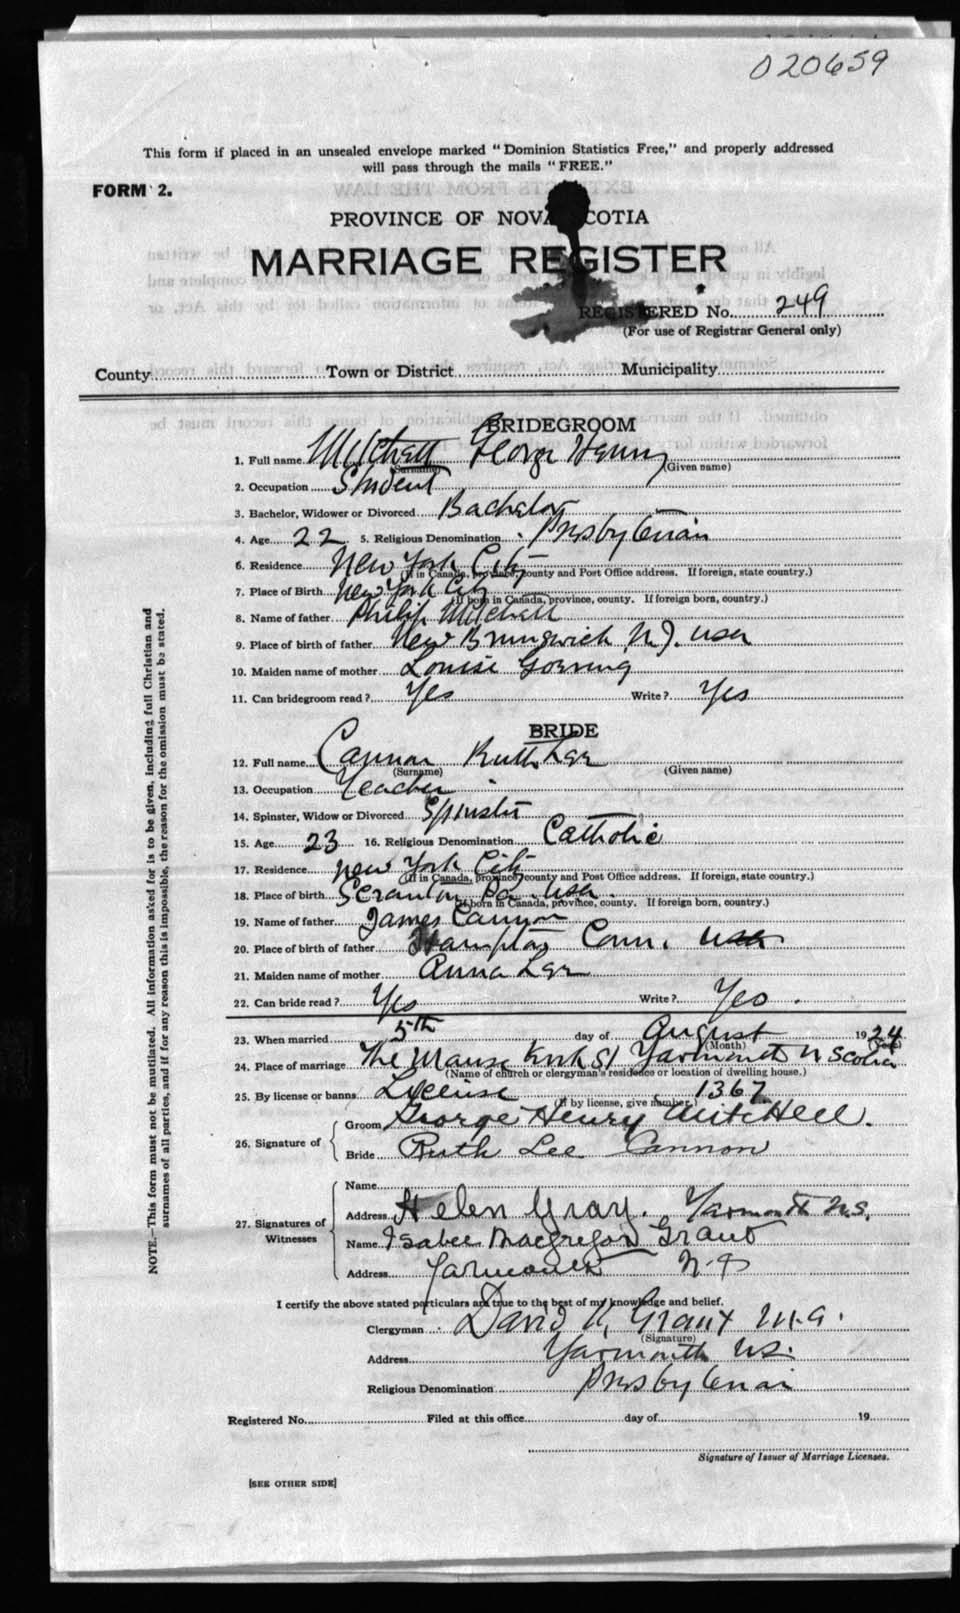 020659
This form if placed in an unsealed envelope marked "Dominion Statistics Free," and properly addressed
will pass through the mails "FREE."
FORM 2.
PROVINCE OF NOVA SCOTIA
MARRIAGE REGISTER
REGISTERED No. 249
(For use of Registrar General only)
County Town or District Municipality
BRIDEGROOM
1. Full name Mitchell George Henry
(Surname) (Given name)
2. Occupation Student
3. Bachelor, Widower or Divorced Bachelor
4. Age 22 5. Religious Denomination Presbyterian
6. Residence New York City
(If in Canada, province, county and Post Office address. If foreign, state country.)
7. Place of Birth New York City
(If born in Canada, province, county. If foreign born, country.)
8. Name of father Philip Mitchell
9. Place of birth of father New Brunswick N.J. USA
10. Maiden name of mother Louise Goerning
11. Can bridegroom read? Yes Write? Yes
BRIDE
12. Full name Cannon Ruth Lee
(Surname) (Given name)
13. Occupation Teacher
14. Spinster, Widow or Divorced Spinster
15. Age 23 16. Religious Denomination Catholic
17. Residence New York City
(If in Canada, province, county and Post Office address. If foreign, state country.)
18. Place of birth Scranton Pa. USA.
(If born in Canada, province, county. If foreign born, country.)
19. Name of father James Cannon
20. Place of birth of father Hampton Conn. USA
21. Maiden name of mother Anna Lee
22. Can bride read? Yes Write? Yes.
23. When married 5th day of August 1924
(Month)
24. Place of marriage The Manse Kirk St Yarmouth N Scotia
(Name of church or clergyman's residence or location of dwelling house.)
25. By license or banns License 1367
(If by license, give number.)
26. Signature of
Groom George Henry Mitchell.
Bride Ruth Lee Cannon
27. Signatures of Witnesses
Name
Address Helen Gray. Yarmouth N.S.
Name Isabel Macgregor Grant
Address Yarmouth N.S
I certify the above stated particulars are true to the best of my knowledge and belief.
Clergyman David K. Grant M.A.
(Signature)
Address Yarmouth N.S.
Religious Denomination Presbyterian
Registered No. Filed at this office day of 19
Signature of Issuer of Marriage Licenses.
[SEE OTHER SIDE]
NOTE.—This form must not be mutilated. All information asked for is to be given, including full Christian and
surnames of all parties, and if for any reason this is impossible, the reason for the omission must be stated.